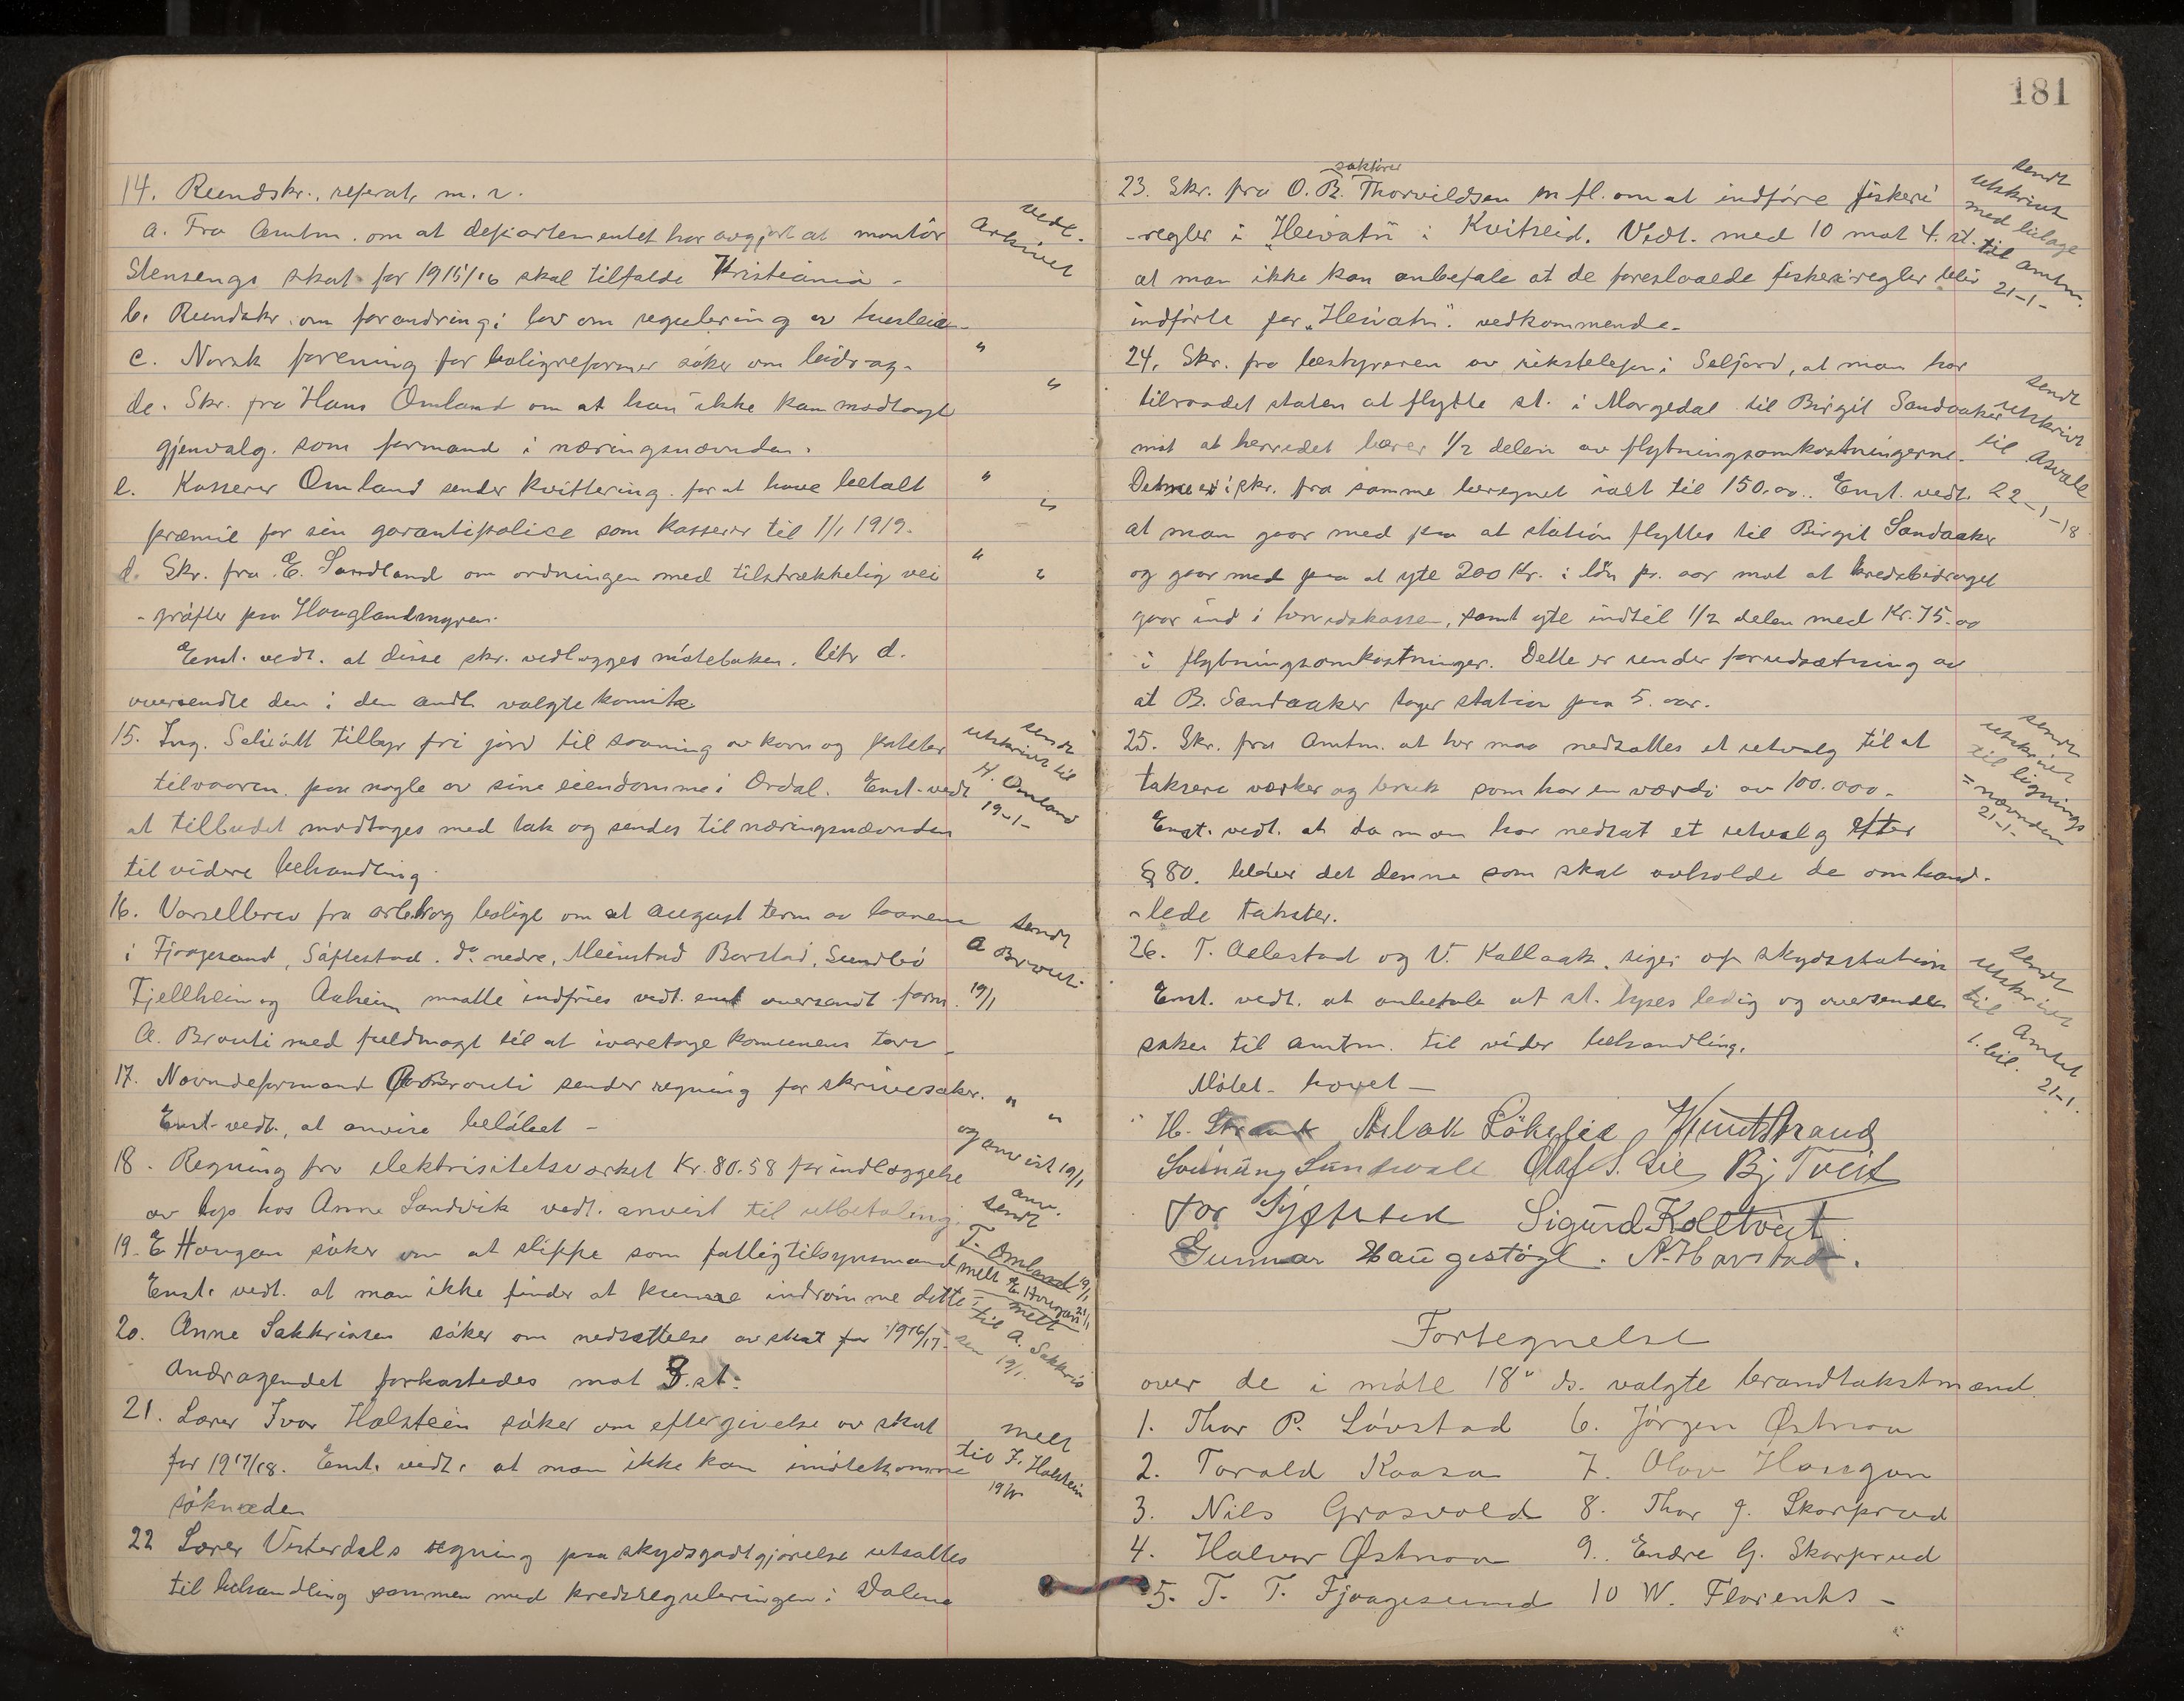 14. Rundskr., referat, m. v.
a. Fra Amtm. om at departementet har avgjort at montör
Stensengs skat for 1915/16 skal tilfalde Kristiania -
b. Rundskr. om forandring i lov om regulering av husleie-
c. Norsk forening for boligreformer söker om bidrag-
de. Skr. fra Hans Omland om at han ikke kan modtage
gjenvalg. som formand i næringsnævnden.
e. Kasserer Omland sender kvittering for at have betalt
præmie for sin garantipolice som kasserer til 1/1 1919.
d. Skr. fra E. Sandland om ordningen med tilstrækkelig vei
-gröfter paa Hauglandsmyren.
Enst. vedt. at disse skr. vedlægges möteboken. litr d.
oversendte den i den andl. valgte komite.
vedl.
Arkivet
"
"
"
"
15. Ing. tilbyr fri jord til saaning av korn og poteter
tilvaaren paa nogle av sine eiendomme i Ordal. Enst. vedt
at tilbudet modtages med tak og sendes til næringsnævnden
til videre behandling.
sendt
utskrivt til
H. Omland
19-1-
16. Varselbrev fra arbk og boligb om at august term av laanene
i Fjaagesund, Säftestad. do nedre, Meinstad Barstad, Sundbö
Fjellheim og Aaheim maatte indfries vedt. enst oversendt form.
A. Brauti med fuldmagt til at ivaretage komunens tarv-
sendt
A Brauti
19/1
17. Nævndeformand Brauti sender regning for skrivesaker.
Enst. vedt., at anvise belöbet -
" "
og anvist 19/1
18. Regning fra elektrisitetsværket Kr. 80.58 for indlæggelse
av lys hos Anne Sandvik vedt. anvist til utbetaling.
anv.
sendt
T. Omland 19/1
19. E Haugan söker om at slippe som fattigtilsynsmand
Enst. vedt. at man ikke finder at kunne indrömme dette
melt E. Haugan 21/1
20. Anne Sakkrisen söker om nedsættelse av skat for 1916/17-
Andragendet forkastedes mot 3. st.
melt
til A. Sakkris
sen 19/1.
21. Lærer Ivar Halstein söker om eftergivelse av skat
for 1917/18. Enst. vedt. at man ikke kan imötekomme
söknaden
melt
til I. Halstein
19/1
22 Lærer Vesterdals regning paa skydsgodtgjörelse utsattes
til behandling sammen med kredsreguleringen i Dalene
181
sakförer
23. Skr. fra O. B. Thorvildsen m fl. om at indföre fiskeri
-regler i "Heivatn" i Kvitseid. Vedt. med 10 mot 4. st.
at man ikke kan anbefale at de foreslaaede fiskeriregler blir
indförte for "Heivatn". vedkommende-
sendt
utskrivt
med bilage
til amtm.
21-1-
24. Skr. fra bestyreren av rikstelefon i Seljord, at man har
tilraadet staten at flytte st. i Morgedal til Birgit Sandaaker
mot at herredet bærer 1/2 delen av flytningsomkostningerne.
Denne er i skr. fra samme beregnet ialt til 150.00. Enst. vedt.
at man gaar med paa at station flyttes til Birgit Sandaaker
og gaar med paa at yte 200 Kr. i lön pr. aar mot at kredsbidraget
gaar ind i herredskassen, samt yte indtil 1/2 delen med Kr. 75.00
i flytningsomkostninger. Dette er under forudsætning av
at B. Sandaaker tager station paa 5. aar.
sendt
utskrivt
til
22-1-18
25. Skr. fra Amtm. at her maa nedsættes et utvalg til at
taksere værker og bruk som har en værdi av 100.000-
Enst. vedt. at da man har nedsat et utvalg efter
§ 80. bliver det denne som skal avholde de omhand-
-lede takster.
sendt
utskrivt
til lignings
=nævnden
21-1-
26. T. Aelestad og V. Kallaak. siger op skydsstation
Enst. vedt. at anbefale at st. lyses ledig og oversendes
saken til amtm. til vider behandling.
sendt
utskrivt
til Amtet
1. bil. 21-1.
Mötet hævet-
H. Strand Aslak Lökslid Knut Strand
Sveinung Sundvall Olaf S. Lie Bj Tveit
Tor Sigurd Kolltveit
Gunnar Haugestögl. A. Harstad.
Fortegnelse
over de i möte 18" ds. valgte brandtakstmænd.
1. Thor P. Lövstad 6. Jörgen Østmoa
2. Torald Kaasa 7. Olav Haugan
3. Nils Grasvold 8. Thor J. Skarprud
4. Halvor Østmoa 9. Endre G. Skarprud
5. T. T. Fjaagesund 10 W. Florentz -